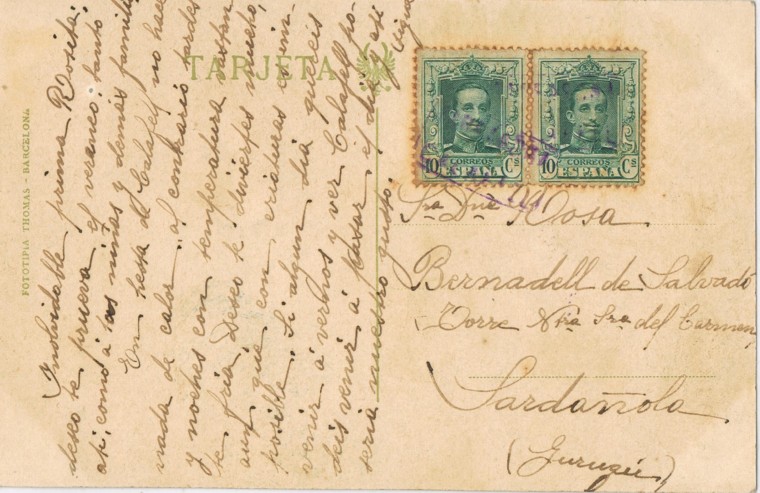 TARJETA
FOTOTIPIA THOMAS - BARCELONA
10 CORREOS Cs
ESPAÑA
10 CORREOS Cs
ESPAÑA
Inolvidable prima Rosita:
deseo te prueva el veraneo, tanto
á ti, como á las niñas y demás familia
En esta de Calafell no hace
nada de calor al contrario tardes
y noches con temperatura
fria. Deseo te diviertas mucho,
aun que con criaturas es im-
posible. Si algun dia quereis
venir á vernos y ver Calafell po-
deis venir á pasar el dia
seria nuestro gusto.
Sra Dña Rosa
Bernadell de Salvadó
Torre Ntra Sra del Carmen
Sardañola